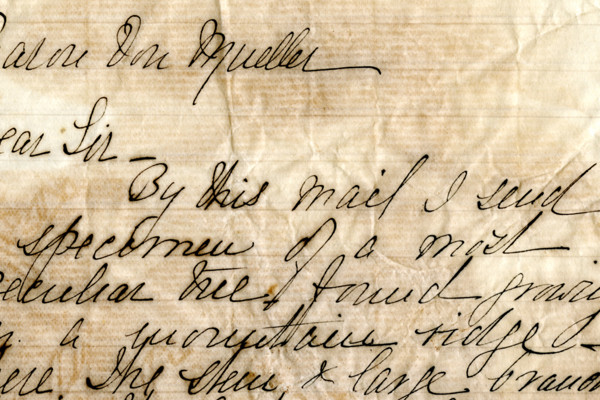 Baron Von Mueller
Dear Sir –
By this mail I send
specimen of a most
peculiar tree I found growing
a mountain ridge –
The stem, & large